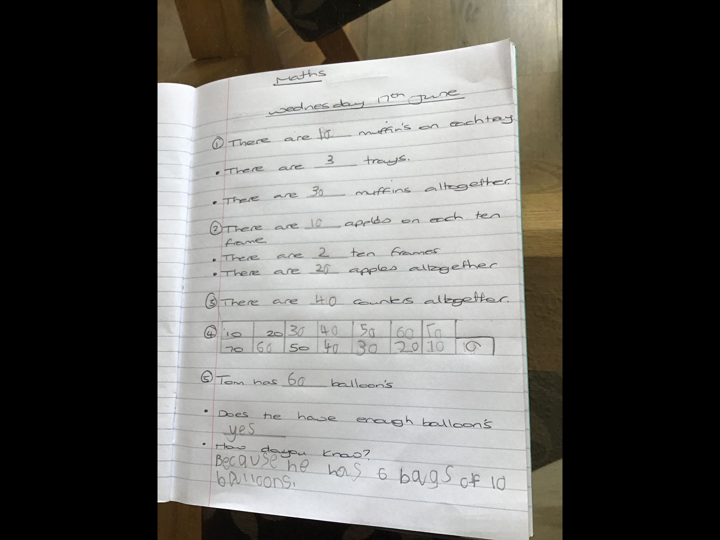 Maths
Wednesday 17th June
① There are 10 muffin's on each tray
• There are 3 trays.
• There are 30 muffins altogether.
② There are 10 apples on each ten
frame.
• There are 2 ten frames
• There are 20 apples altogether
③ There are 40 counters altogether.
④ 10 20 30 40 50 60 70
70 60 50 40 30 20 10 0
⑤ Tom has 60 balloon's
• Does he have enough balloon's
yes
• How do you know?
Because he has 6 bags of 10
balloons.